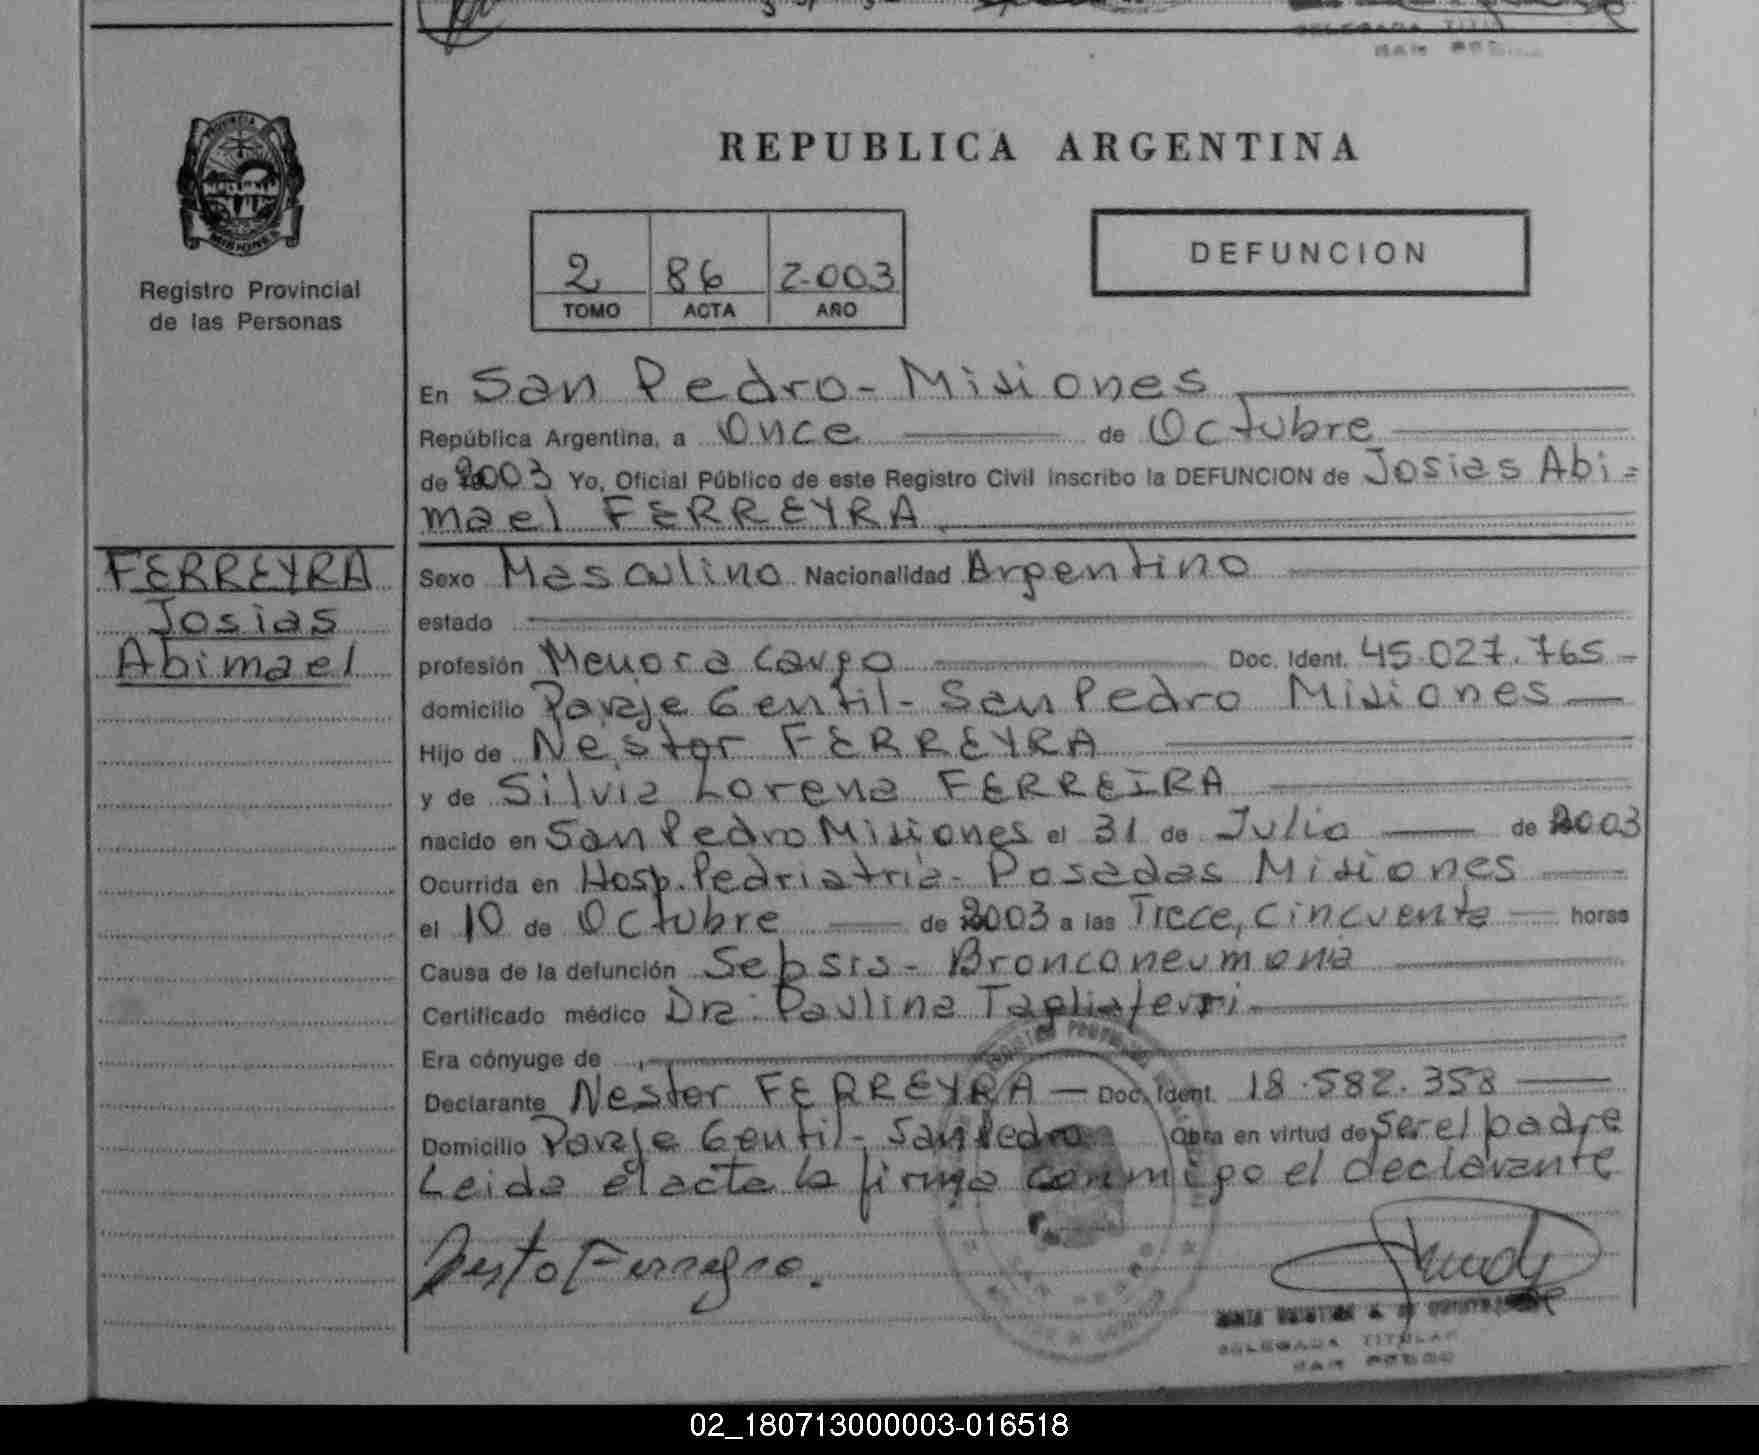 REPUBLICA ARGENTINA
PROVINCIA
MISIONES
Registro Provincial
de las Personas
2 86 2.003
TOMO ACTA AÑO
DEFUNCION
En San Pedro - Misiones
República Argentina, a Once de Octubre
de 2003 Yo, Oficial Público de este Registro Civil inscribo la DEFUNCION de Josias Abi=
mael FERREYRA
FERREYRA
Josias
Abimael
Sexo Masculino Nacionalidad Argentino
estado
profesión Menor a cargo Doc. Ident. 45.027.765-
domicilio Paraje Gentil - San Pedro Misiones
Hijo de Nestor FERREYRA
y de Silvia Lorena FERREIRA
nacido en San Pedro Misiones el 31 de Julio de 2003
Ocurrida en Hosp. Pedriatria - Posadas Misiones
el 10 de Octubre de 2003 a las Trece, cincuenta horas
Causa de la defunción Sepsis - Bronconeumonia
Certificado médico Dra: Paulina Tagliaferri
Era cónyuge de
Declarante Nestor FERREYRA - Doc. Ident. 18.582.358
Domicilio Paraje Gentil - San Pedro Obra en virtud de Ser el padre
Leida el acta la firma conmigo el declarante
DELEGADA TITULAR
SAN PEDRO
02_180713000003-016518